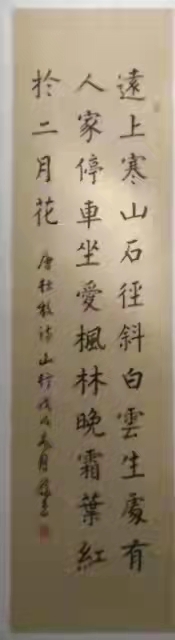 遠上寒山石徑斜白雲生處有
人家停車坐愛楓林晚霜葉紅
於二月花
唐杜牧詩山行戊戌